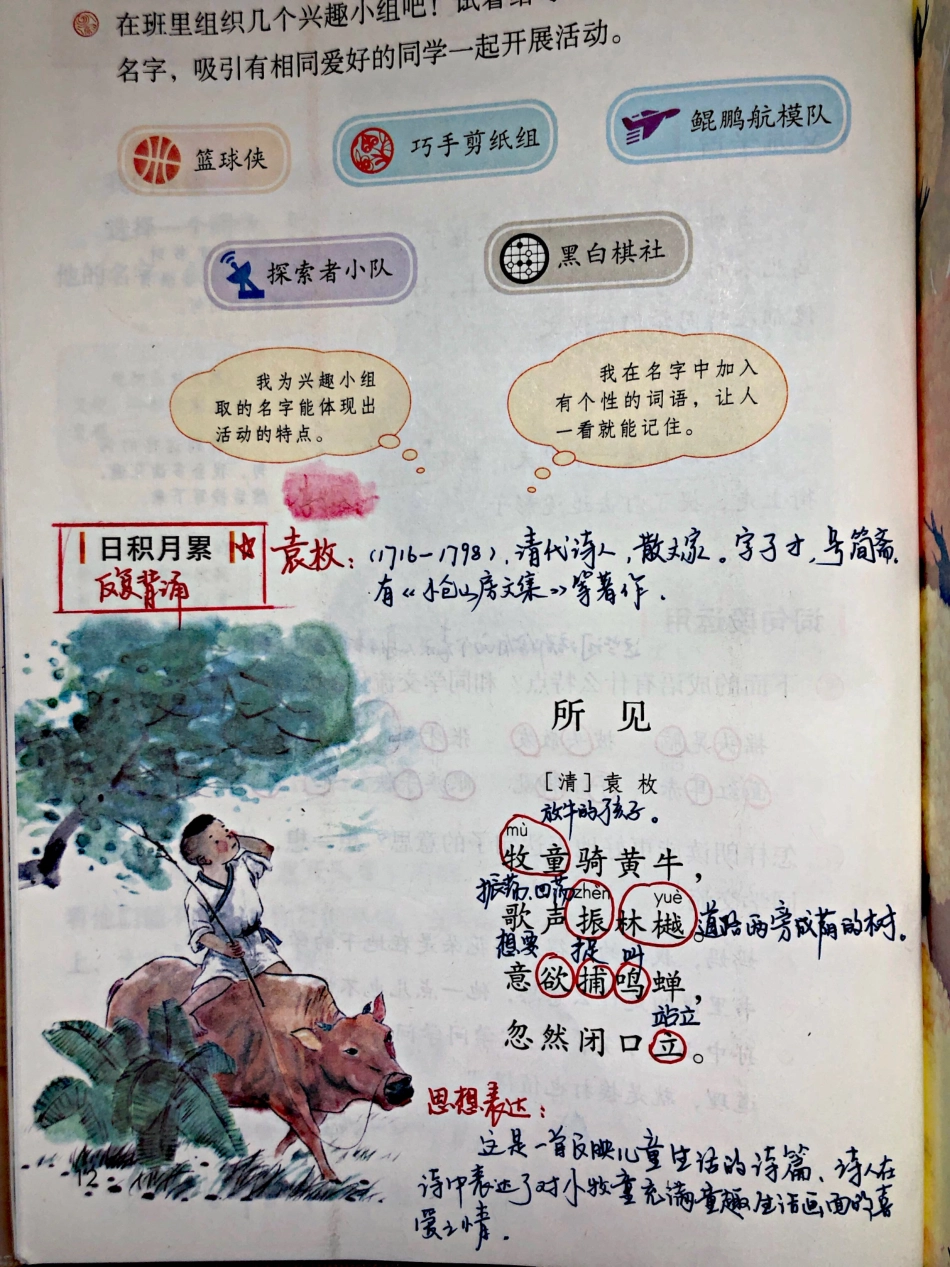 在班里组织几个兴趣小组吧！试着给
名字，吸引有相同爱好的同学一起开展活动。
篮球侠
巧手剪纸组
鲲鹏航模队
探索者小队
黑白棋社
我为兴趣小组
取的名字能体现出
活动的特点。
我在名字中加入
有个性的词语，让人
一看就能记住。
日积月累
反复背诵
袁枚：(1716—1798)，清代诗人，散文家。字子才，号简斋.
有《小仓山房文集》等著作.
所见
[清]袁枚
放牛的孩子。
mù
牧童骑黄牛，
振荡、回荡 zhèn yuè
歌声振林樾。道路两旁成荫的树。
想要 捉 叫
意欲捕鸣蝉，
站立
忽然闭口立。
思想表达：
这是一首反映儿童生活的诗篇、诗人在
诗中表达了对小牧童充满童趣生活画面的喜
爱之情.
12